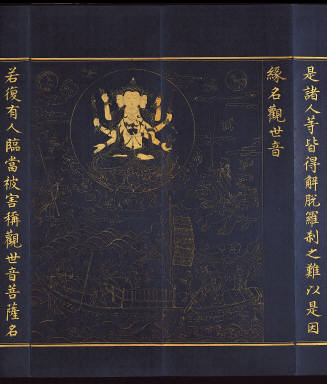 是諸人等皆得解脫羅剎之難以是因
緣名觀世音
若復有人臨當被害稱觀世音菩薩名